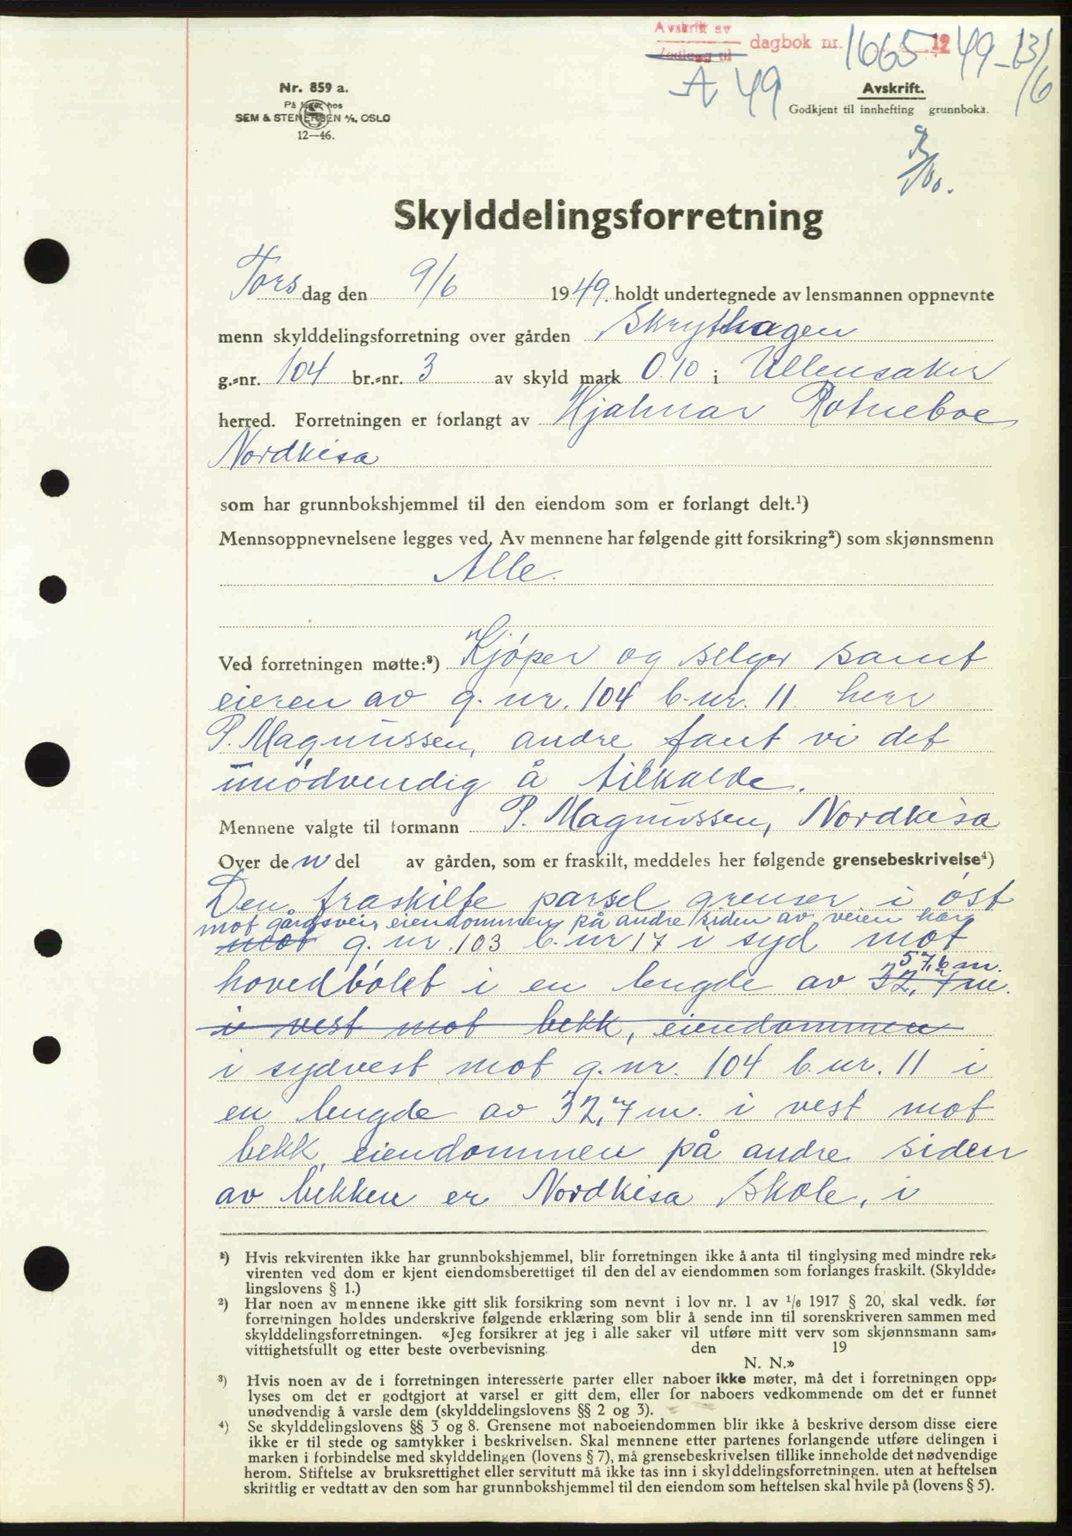 Avskrift av
Vedlegg til dagbok nr. 1665 19 49-13/6
A 49
Nr. 859 a.
På lager hos
SEM & STENERSEN A/S, OSLO
12—46.
Avskrift.
Godkjent til innhefting i grunnboka.
Skylddelingsforretning
Tors dag den 9/6 1949. holdt undertegnede av lensmannen oppnevnte
menn skylddelingsforretning over gården Skrythagen
g.-nr. 104 br.-nr. 3 av skyld mark 0,10 i Ullensaker
herred. Forretningen er forlangt av Hjalmar Rotneboe
Nordkisa
som har grunnbokshjemmel til den eiendom som er forlangt delt.¹)
Mennsoppnevnelsene legges ved. Av mennene har følgende gitt forsikring²) som skjønnsmenn
Alle.
Ved forretningen møtte:³) Kjøper og selger samt
eieren av g. nr. 104 b. nr. 11 herr
P. Magnussen, andre fant vi det
unødvendig å tilkalde.
Mennene valgte til formann P. Magnussen, Nordkisa
Over den del av gården, som er fraskilt, meddeles her følgende grensebeskrivelse⁴)
Den fraskilte parsel grenser i øst
mot gårdsvei, eiendommen på andre siden av veien har
mot g. nr. 103 b. nr 17 i syd mot
57,6 m.
hovedbølet i en lengde av 32,7 m.
i vest mot bekk, eiendommen
i sydvest mot g. nr. 104 b. nr. 11 i
en lengde av 32,7 m. i vest mot
bekk, eiendommen på andre siden
av bekken er Nordkisa skole, i
¹) Hvis rekvirenten ikke har grunnbokshjemmel, blir forretningen ikke å anta til tinglysing med mindre rek-
virenten ved dom er kjent eiendomsberettiget til den del av eiendommen som forlanges fraskilt. (Skyldde-
lingslovens § 1.)
²) Har noen av mennene ikke gitt slik forsikring som nevnt i lov nr. 1 av 1/6 1917 § 20, skal vedk. før
forretningen holdes underskrive følgende erklæring som blir å sende inn til sorenskriveren sammen med
skylddelingsforretningen. «Jeg forsikrer at jeg i alle saker vil utføre mitt verv som skjønnsmann sam-
vittighetsfullt og etter beste overbevisning. den 19
N. N.»
³) Hvis noen av de i forretningen interesserte parter eller naboer ikke møter, må det i forretningen opp-
lyses om det er godtgjort at varsel er gitt dem, eller for naboers vedkommende om det er funnet
unødvendig å varsle dem (skylddelingslovens §§ 2 og 3).
⁴) Se skylddelingslovens §§ 3 og 8. Grensene mot naboeiendommen blir ikke å beskrive dersom disse eiere
ikke er til stede og samtykker i beskrivelsen. Skal mennene etter partenes forlangende utføre delingen i
marken i forbindelse med skylddelingen (lovens § 7), må grensebeskrivelsen tillike inneholde det nødvendige
herom. Stiftelse av bruksrettighet eller servitutt må ikke tas inn i skylddelingsforretningen, uten at heftelsen
skriftlig er vedtatt av den som har grunnbokshjemmel til den eiendom som heftelsen skal hvile på (lovens § 5).